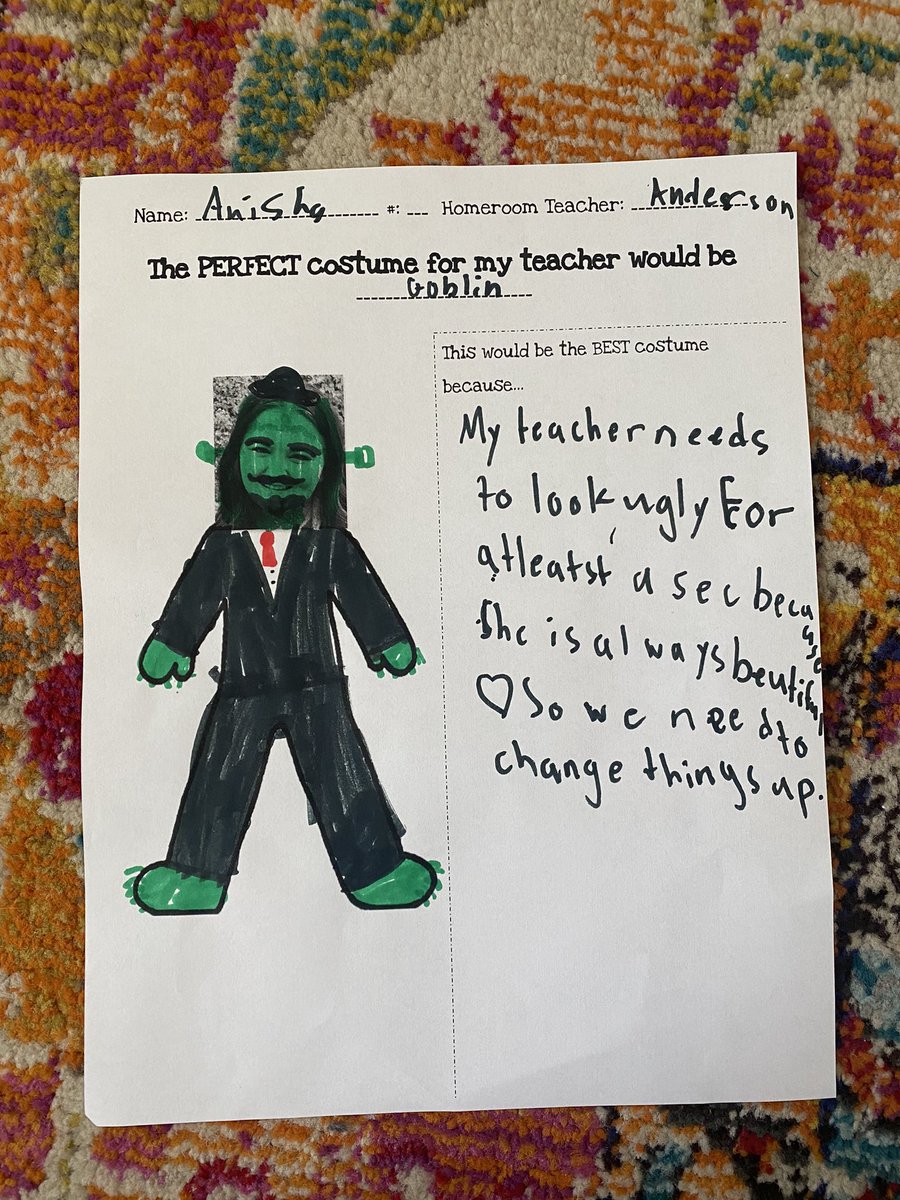 Name: Anisha #: Homeroom Teacher: Anderson
The PERFECT costume for my teacher would be
Goblin
This would be the BEST costume
because...
My teacher needs
to look ugly For
atleatst a sec because
She is always beutiful
♡ So we need to
change things up.